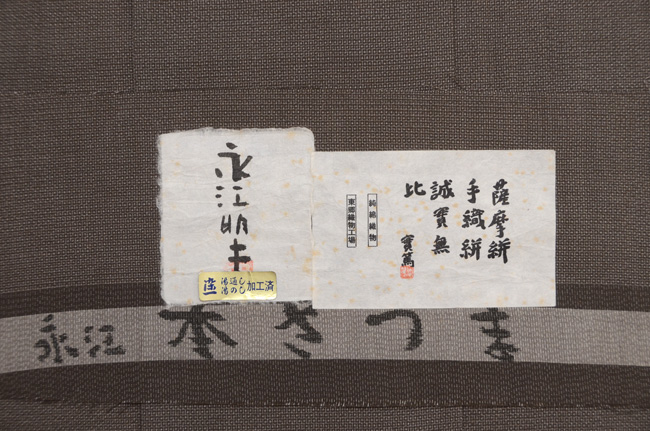 薩摩絣
手織絣
誠實無
比
實篤
純綿織物
東郷織物工場
永江明夫
湯通し
湯のし
加工済
永江 本さつま